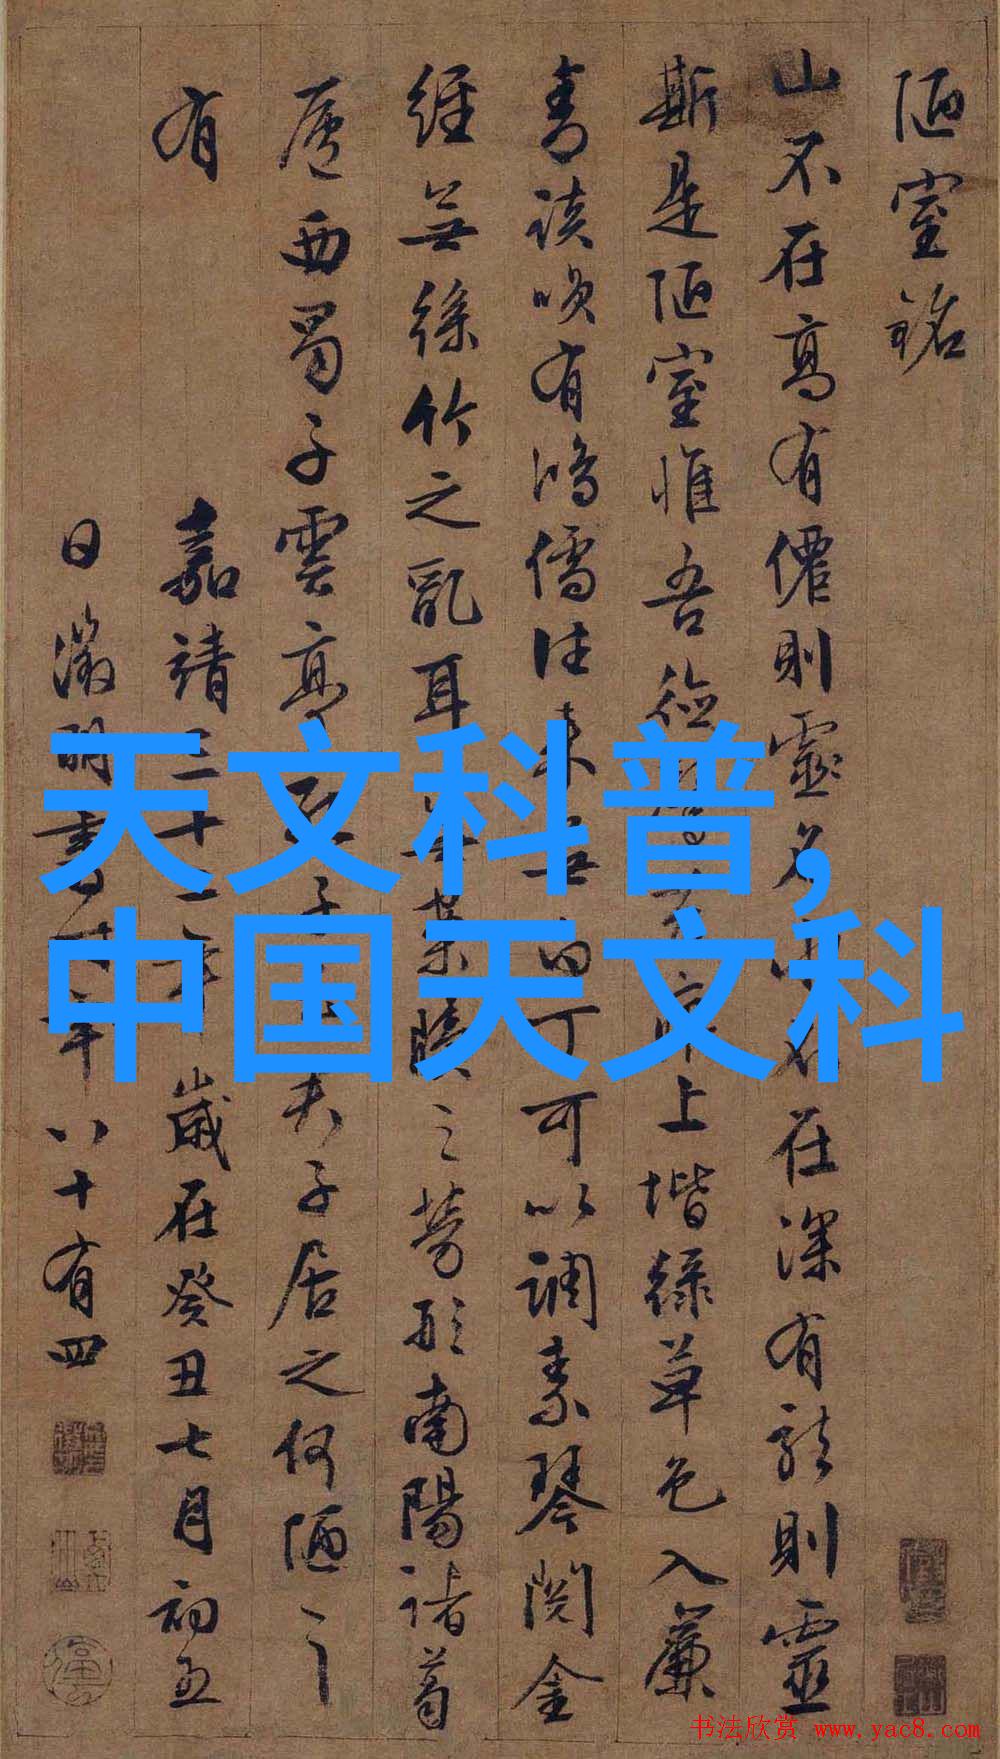 陋室銘
山不在高有僊則靈名不在深有龍則靈
斯是陋室惟吾德上堦綠草色入簾
青談笑有鴻儒往來無白丁可以調素琴閱金
經無絲竹之亂耳無案牘之勞形南陽諸葛
廬西蜀子雲亭夫子居之何陋之
有
嘉靖三十二年歲在癸丑七月初五
日徵明書時年八十有四
天文科普,
中国天文科
书法欣赏 www.yac8.com